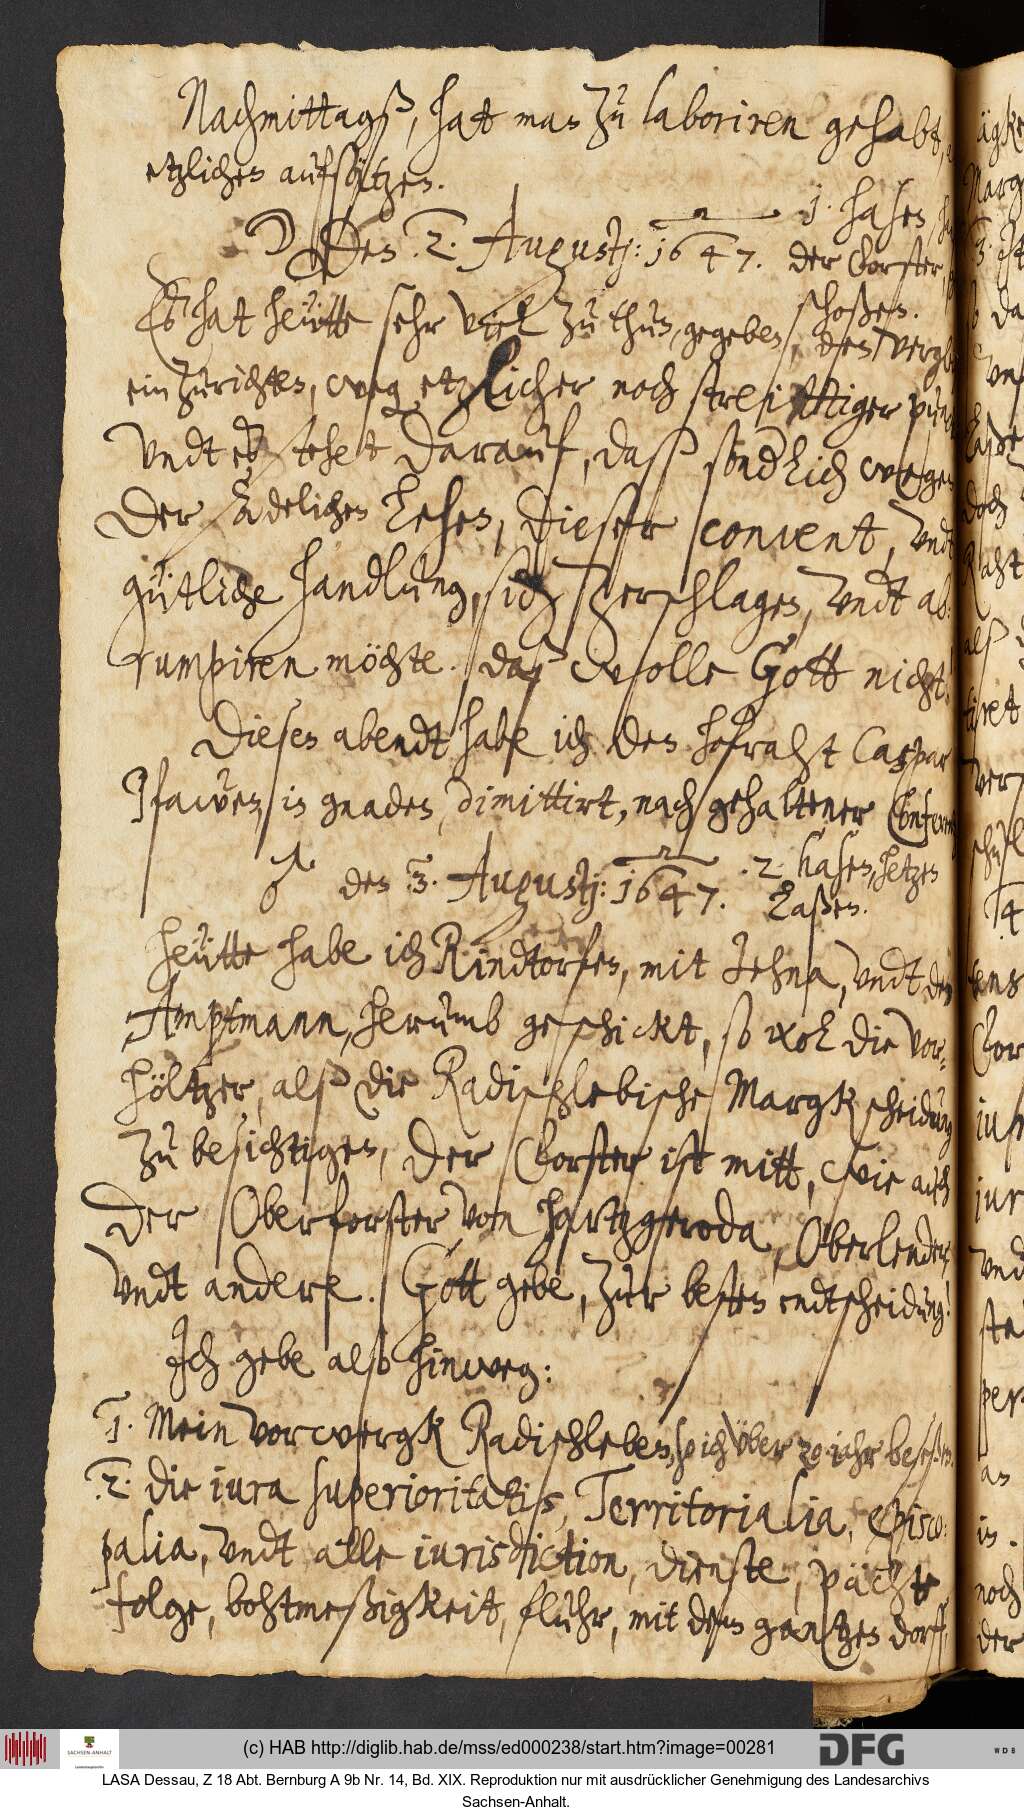 Nachmittagß, hat man zu laboriren gehabt,
etzlichen aufsätzen.
☽ Den 2. Augustj: 1647. 1. hasen,
der Vorster,
schoßen.
Es hat heütte sehr viel zu thun, gegeben, den vergl
ein zu richten, weg etzlicher noch streittiger
Undt es stehet darauf, daß söndlich wegen
der Adelichen Lehen, dieser convent, undt
gütliche handlung, sich zerschlagen, undt ab-
rumpiren möchte. daß wolle Gott nicht.
Diesen abendt habe ich den hofraht Caspar
Pfawen, in gnaden, dimittirt, nach gehaltener Conferentz
♂ den 3. Augustj: 1647. 2 hasen, hetzen
Laßen.
Heütte habe ich Rindtorfen, mit Jehna, undt den
Amptmann, herumb geschickt, so wol die Vor-
höltzer, alß die Radischlebische Margkscheidung
zu besichtigen, der Vorster ist mitt, wie auch
der Oberforster von Hartzgeroda, Oberlender,
undt andere. Gott gebe, zur besten endtscheidung!
Ich gebe also hinweg:
1. Mein Vorwergk Radischleben, so ich über 20 iahr beseßen.
2. die iura superioritatis, Territorialia, episco-
palia, undt alle iurisdiction, dienste, pächte
folge, bohtmeßigkeit, fluhr, mit dem gantzen dorff,
(c) HAB http://diglib.hab.de/mss/ed000238/start.htm?image=00281
SACHSEN-ANHALT
DFG
WDB
LASA Dessau, Z 18 Abt. Bernburg A 9b Nr. 14, Bd. XIX. Reproduktion nur mit ausdrücklicher Genehmigung des Landesarchivs
Sachsen-Anhalt.